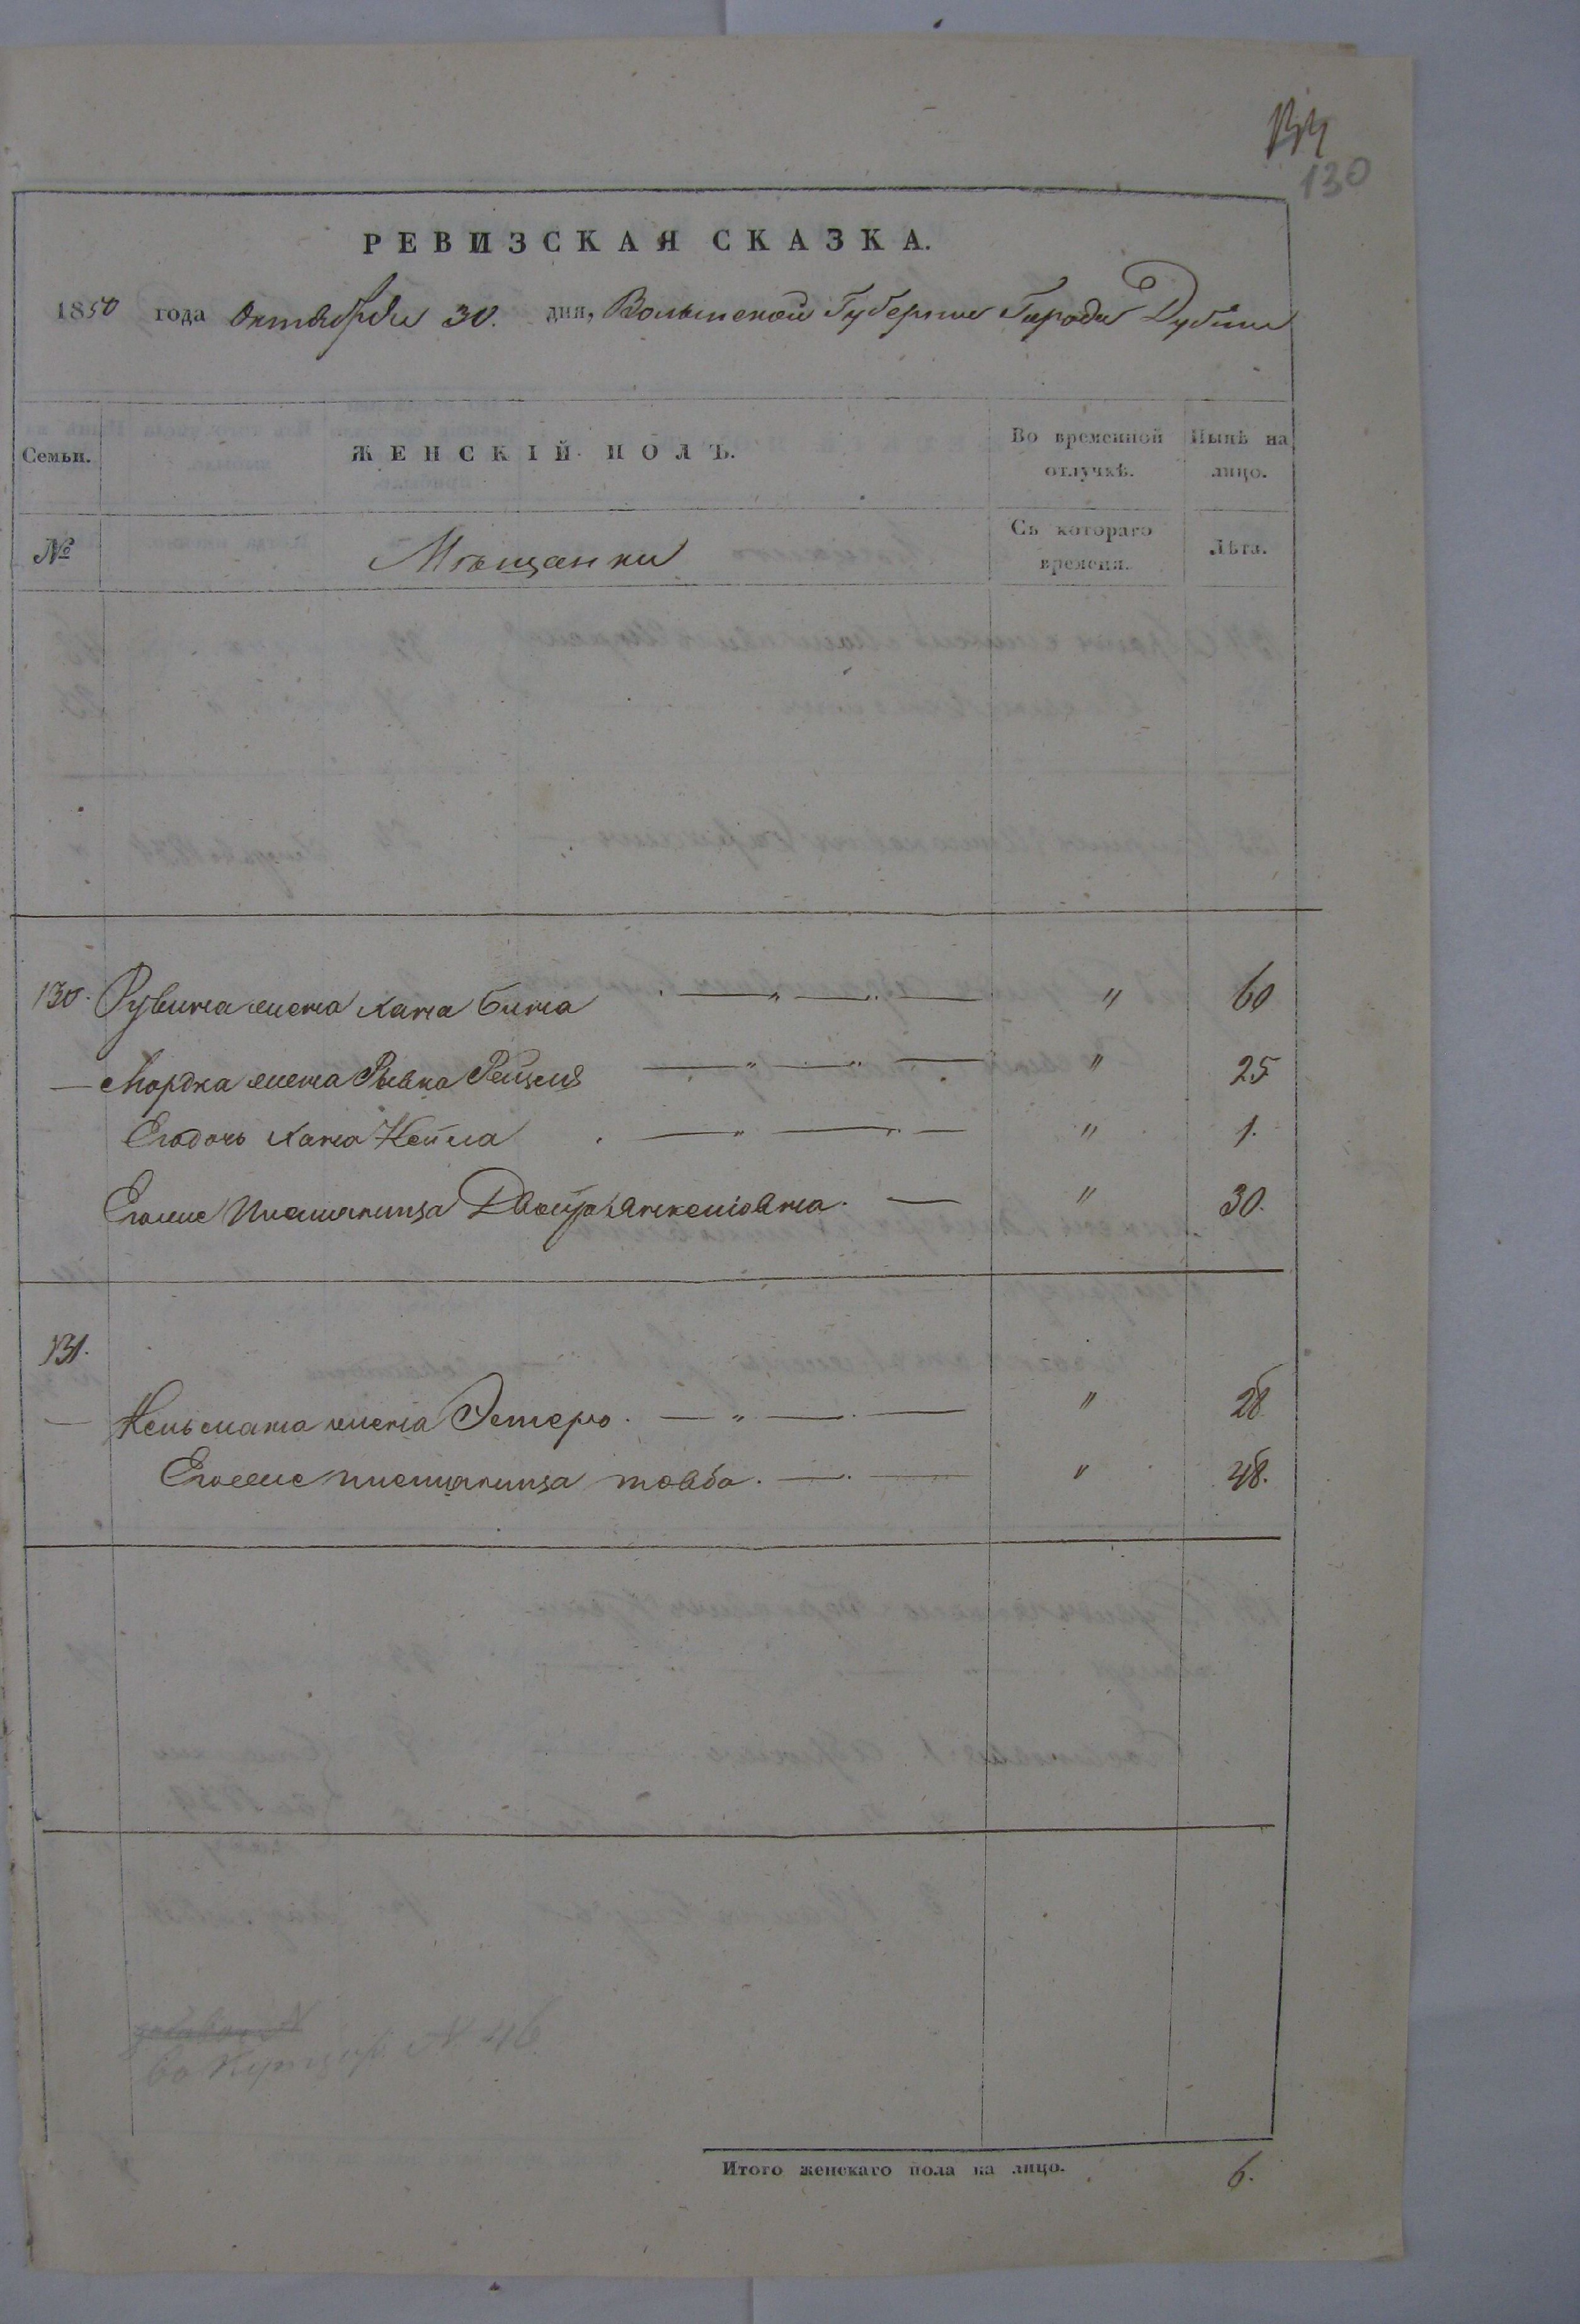 130
РЕВИЗСКАЯ СКАЗКА.
1850 года Октября 30. дня, Волынской Губернии Города Дубны
Семьи. ЖЕНСКІЙ ПОЛЪ. Во временной отлучкѣ. Нынѣ на лицо.
№ Мѣщанки Съ котораго времени. Лѣта.
130. Рувина жена Хана Бина — " — " — " 60
— Мордка жена Рывка Рейзля — " — " — " 25
Его дочь Хана Нейла — " — " — " 1.
Его же племянница Двойра Янкелiовна — " 30.
131.
— жена Эстера. — " — . — " 28.
Его же племянница товба. — . — " 48.
№ 46
Итого женскаго пола на лицо. 6.